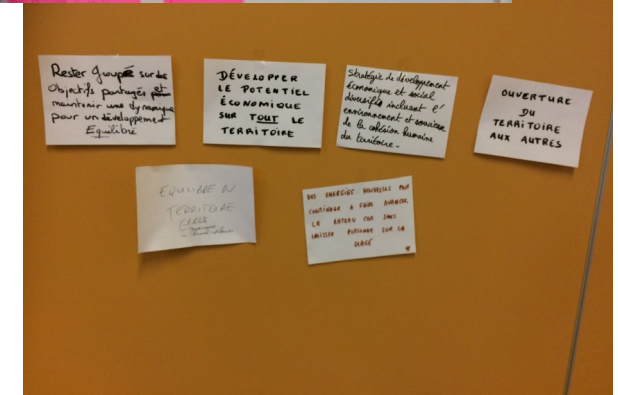 Rester Groupé sur des
Objectifs partagés et
maintenir une dynamique
pour un développement
Equilibré
DÉVELOPPER
LE POTENTIEL
ÉCONOMIQUE
SUR TOUT LE
TERRITOIRE
Stratégie de développement
économique et social
diversifié incluant l'
environnement et
de la cohésion humaine
du territoire.
OUVERTURE
DU
TERRITOIRE
AUX AUTRES
EQUILIBRE DU
TERRITOIRE
DES ENERGIES NOUVELLES POUR
CONTINUER A FAIRE AVANCER
LE BATEAU SANS
LAISSER PERSONNE SUR LA
PLAGE